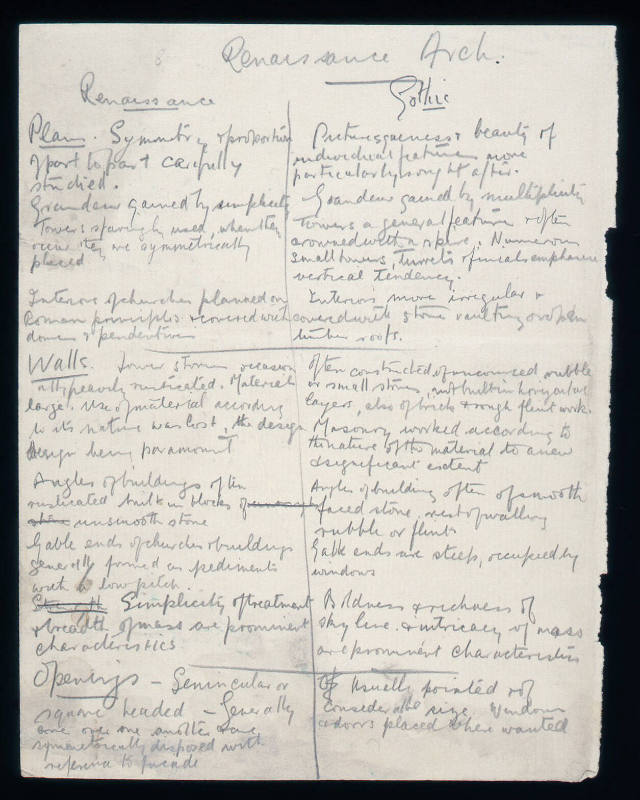 Renaissance Arch.
Renaissance
Plan. Symmetry & proportion
of part to part carefully
studied.
Grandeur gained by simplicity
Towers sparingly used, when they
occur they are symmetrically
placed
Interiors of churches planned on
Roman principles & covered with
domes & pendentives
Walls. Lower stories occasion
ally heavily rusticated. Materials
large. Use of material according
to its nature was lost, the design
design being paramount
Angles of buildings often
rusticated built in blocks of
unsmooth stone
Gable ends of churches & buildings
generally formed as pediments
with a low pitch.
Simplicity of treatment
& breadth of mass are prominent
characteristics
Openings – Semicircular or
square headed – Generally
one over one another & are
symmetrically disposed with
reference to facade
Gothic
Picturesqueness & beauty of
individual features more
particularly sought after.
Grandeur gained by multiplicity
Towers a general feature & often
crowned with a spire. Numerous
small towers, turrets & finials emphasise
vertical tendency.
Interiors more irregular &
covered with stone vaulting or open
timber roofs.
often constructed of uncoursed rubble
or small stones, not built in horizontal
layers, also of bricks & rough flint work.
Masonry worked according to
the nature of the material to a new
& significant extent
Angles of building often of smooth
faced stone, rest of walling
rubble or flints
Gable ends are steep, occupied by
windows
Boldness & richness of
skyline & intricacy of mass
are prominent characteristics
Usually pointed & of
considerable size. Windows
& doors placed where wanted